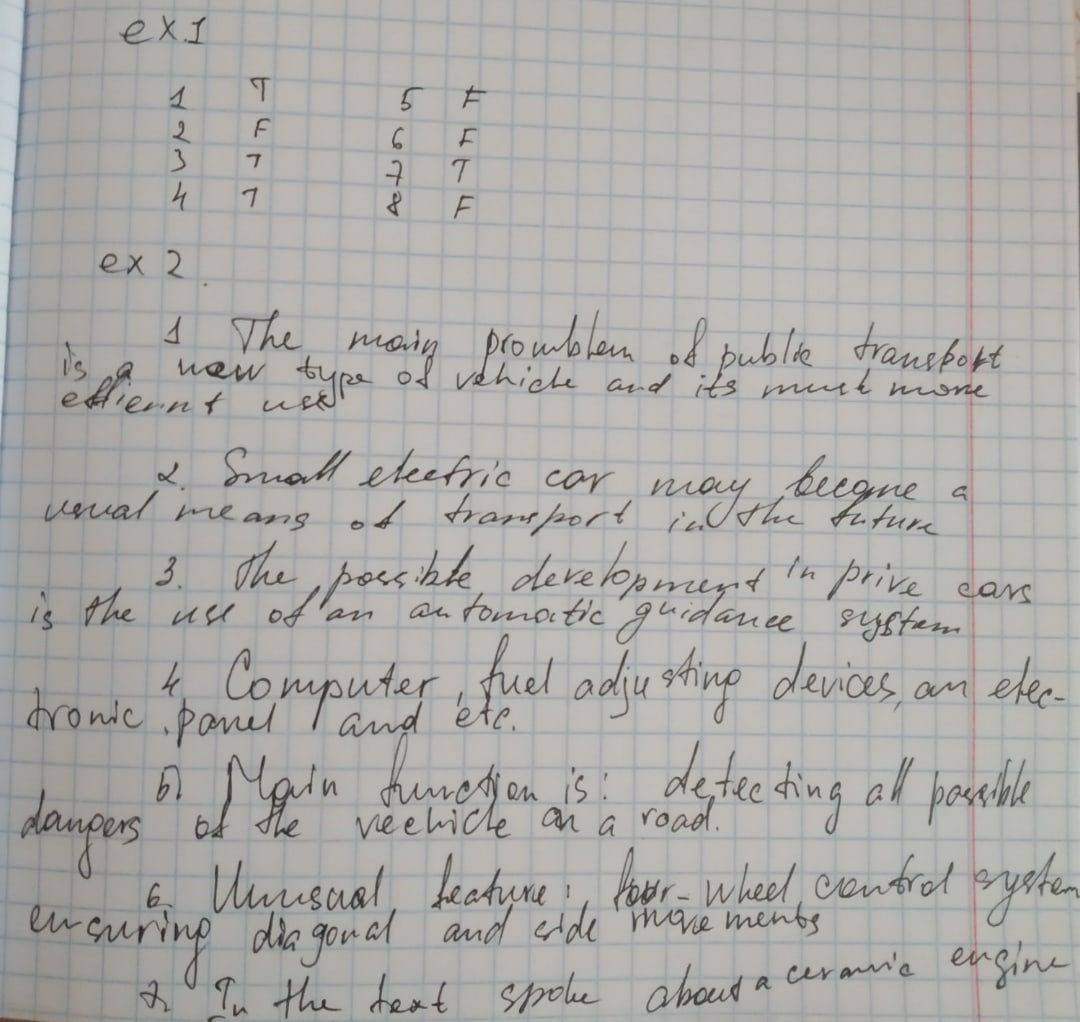 ex 1
1 T 5 F
2 F 6 F
3 T 7 T
4 T 8 F
ex 2.
1 The main promblem of public transport
is a new type of vehicle and its must more
effiennt use
2. Small electric car may become a
usual means of transport in the future
3. The possible development in prive cars
is the use of an automatic guidance system
4. Computer, fuel adjusting devices, an elec-
tronic panel and etc.
5) Main function is: detecting all possible
dangers of the veehicle on a road.
6. Unusual feature: four-wheel control system
ensuring diagonal and side movements
7. In the text spoke about a ceramic engine